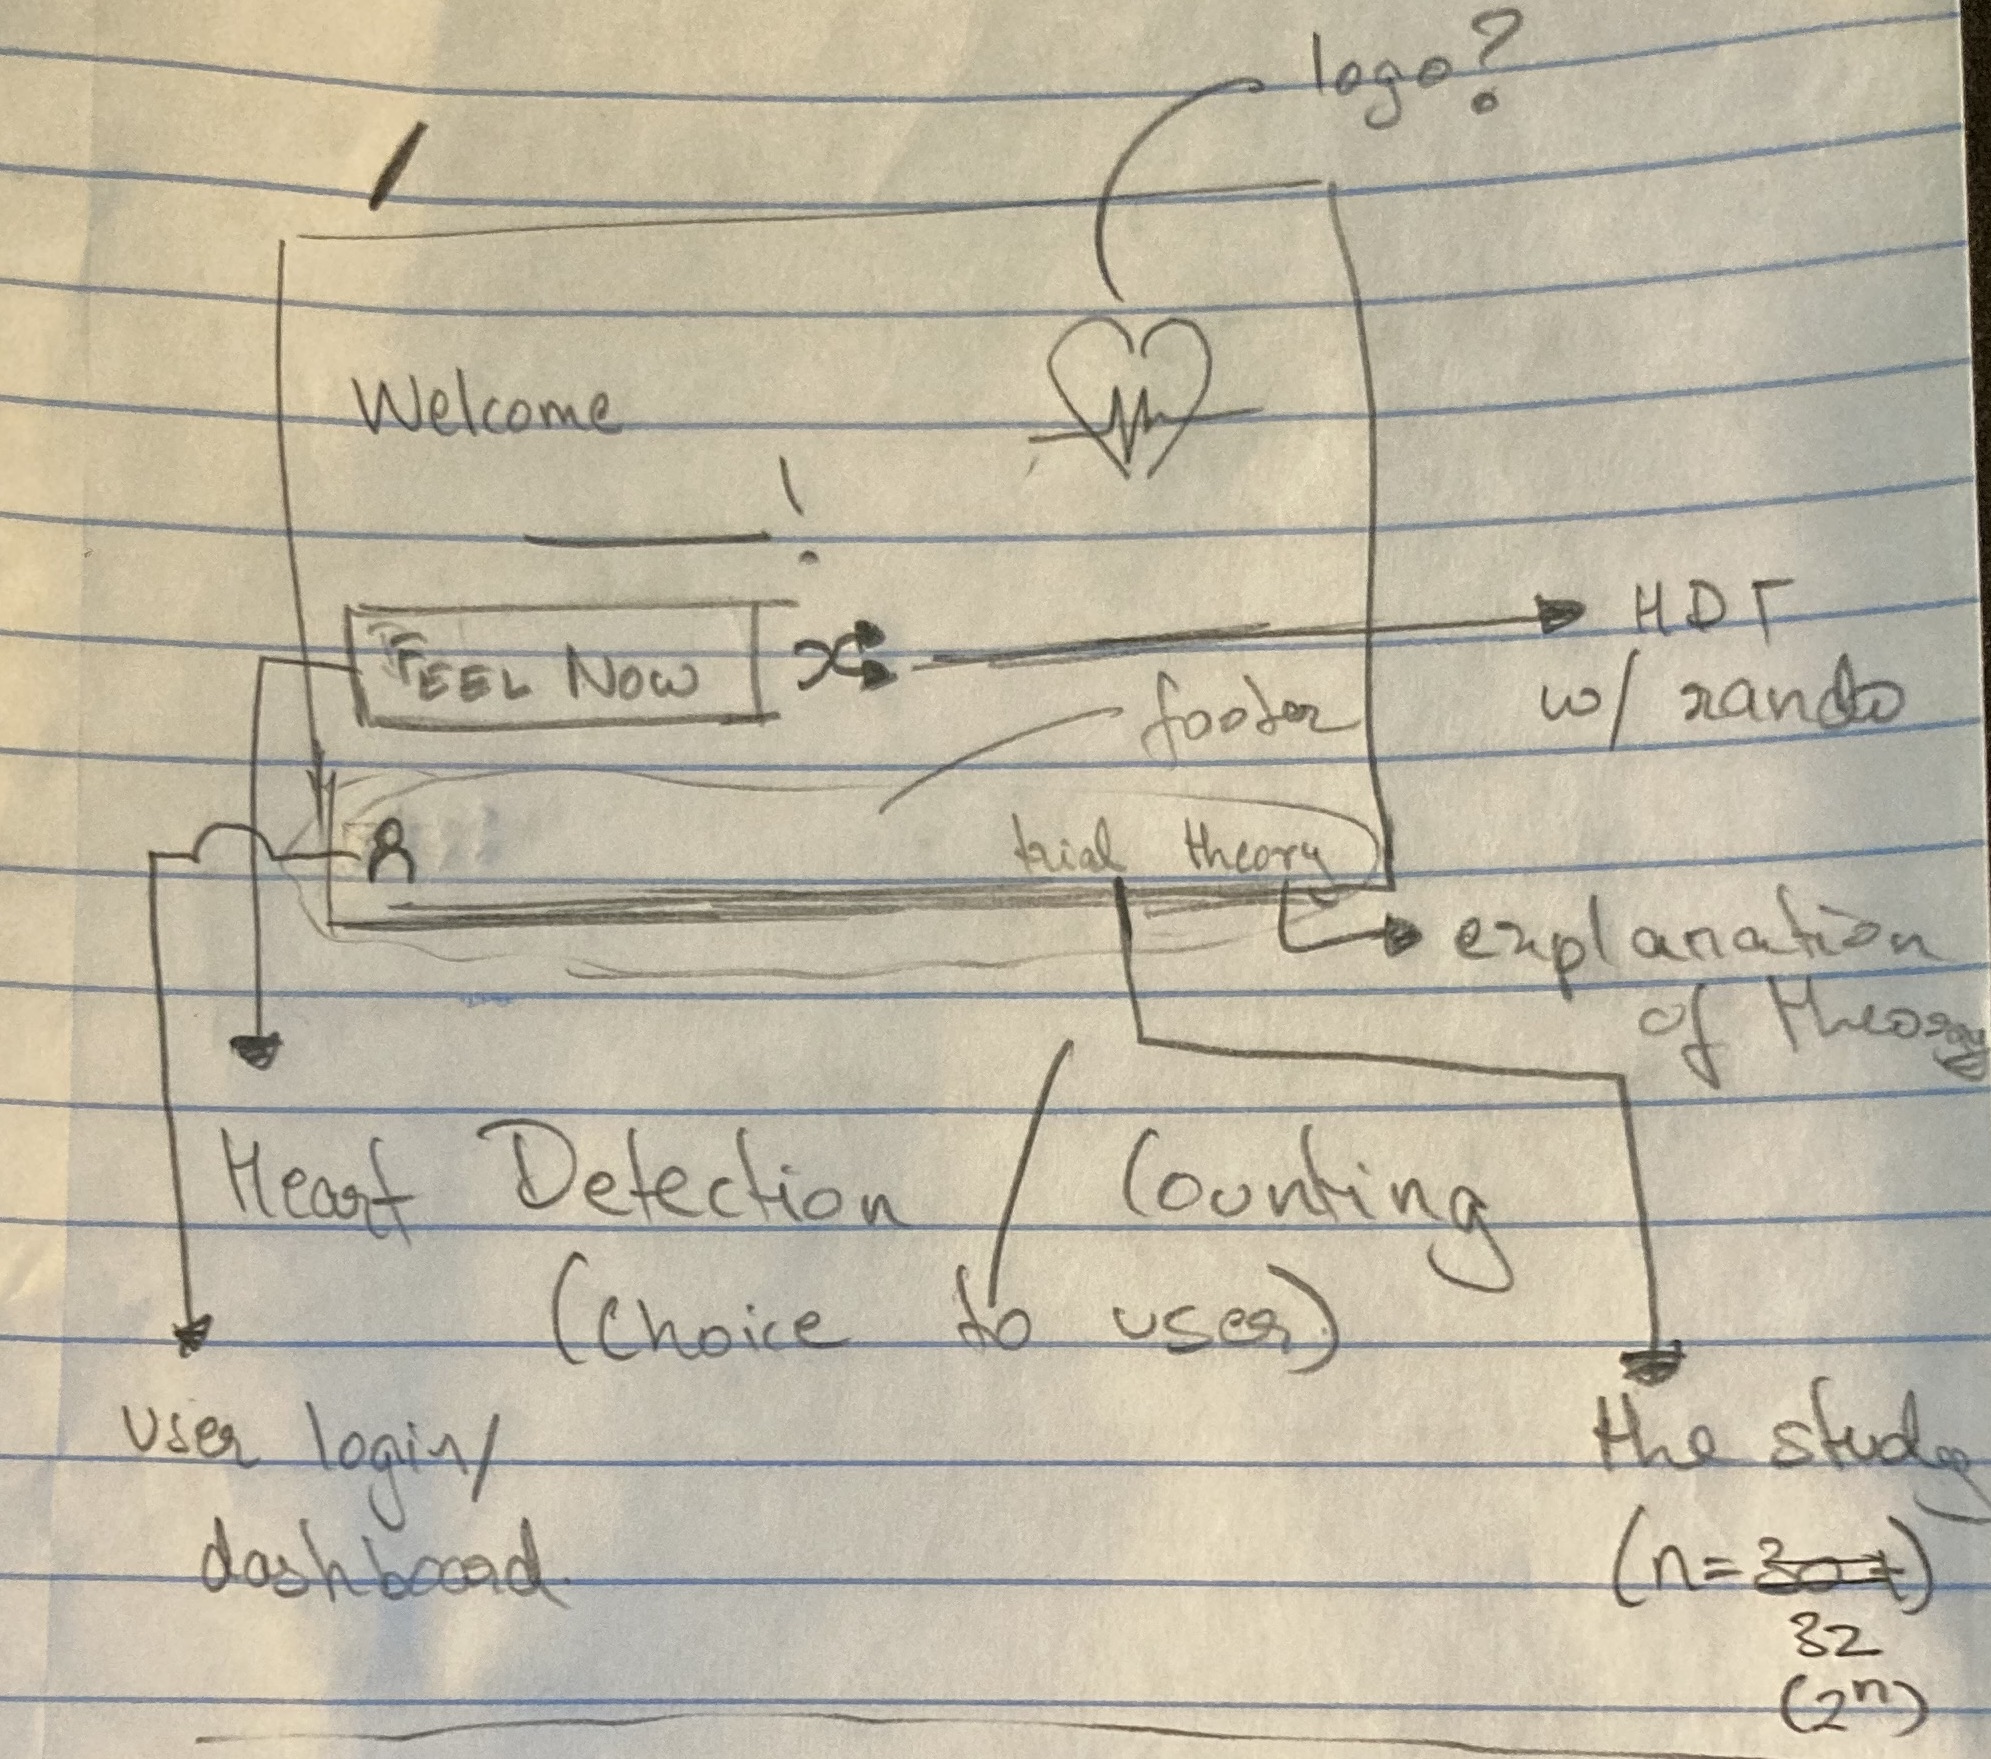 logo?
Welcome
!
FEEL NOW
HDT
w/ rando
footer
trial theory
explanation
of theory
Heart Detection / Counting
(choice to user)
user login/
dashboard
the study
(n=30+)
32
(2ⁿ)